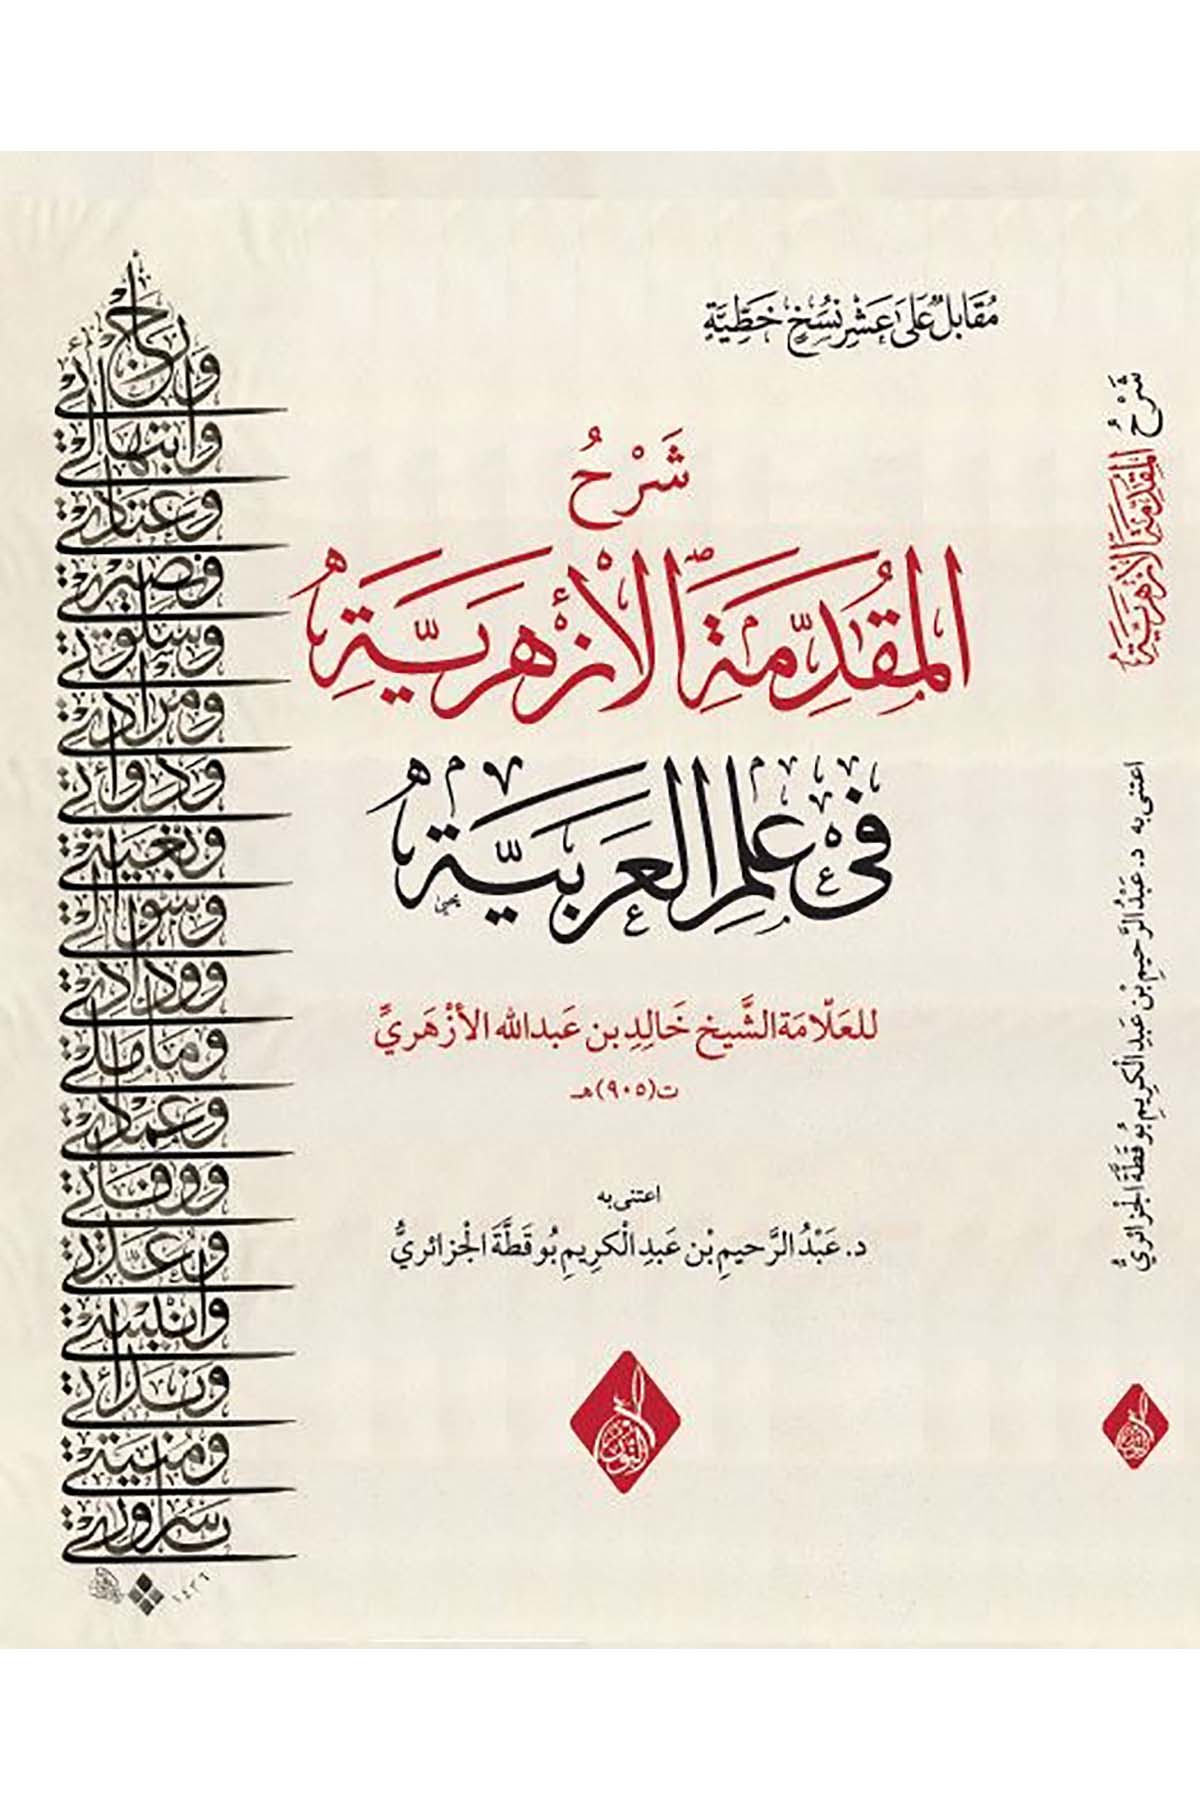 مُقَابَلٌ عَلَى عَشْرِ نُسَخٍ خَطِّيَّةٍ
شَرْحُ
المُقَدِّمَةِ الأَزْهَرِيَّةِ
فِي عِلْمِ العَرَبِيَّةِ
للعَلّامَة الشَّيخ خَالِدِ بن عَبد الله الأَزْهَريِّ
ت (٩٠٥) هـ
اعتنى به
د. عَبْدُ الرَّحيمِ بْن عَبدِ الْكَرِيمِ بُوقَطَّةَ الْجَزائريُّ
شَرْحُ المُقَدِّمَةِ الأَزْهَرِيَّةِ
اعتنى به د. عَبْدُ الرَّحيمِ بْن عَبدِ الْكَرِيمِ بُوقَطَّةَ الْجَزائريُّ
وابتهالي
ونصرتي
وسلوتي
ومرادي
ودوائي
وبغيتي
وسؤالي
وودادي
ومأملي
وعمادي
ووفائي
وعدتي
وأنيستي
وندائي
ومنيتي
سروري
١٤٢٦